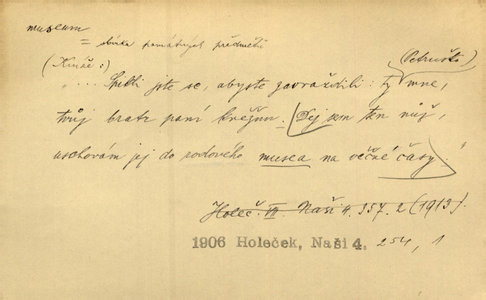 museum
= sbírka památných předmětů
(Kníže:) (Petruši)
"... Smluvili jste se, abyste zavraždili: ty mne,
tvůj bratr paní kněžnu. Dej sem ten nůž,
uschovám jej do rodového musea na věčné časy."
Holeč. VII Naši 4. 357. 2 (1913).
1906 Holeček, Naši 4. 254, 1